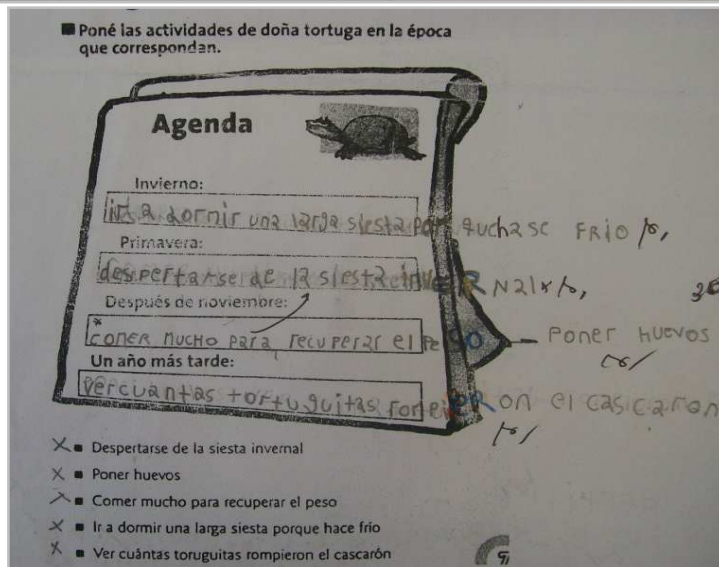 ■ Poné las actividades de doña tortuga en la época
que correspondan.
Agenda
Invierno:
a dormir una larga siesta FRIO
Primavera:
despertarse de la siesta inVERNal
Después de noviembre:
* comer mucho para recuperar el peso — Poner Huevos
Un año más tarde:
ver cuantas tortuguitas on el cascaron
X ■ Despertarse de la siesta invernal
X ■ Poner huevos
X ■ Comer mucho para recuperar el peso
X ■ Ir a dormir una larga siesta porque hace frío
X ■ Ver cuántas toruguitas rompieron el cascarón